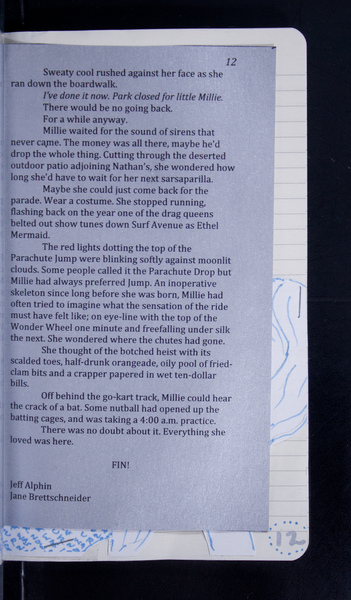 12
Sweaty cool rushed against her face as she
ran down the boardwalk.
I've done it now. Park closed for little Millie.
There would be no going back.
For a while anyway.
Millie waited for the sound of sirens that
never came. The money was all there, maybe he'd
drop the whole thing. Cutting through the deserted
outdoor patio adjoining Nathan's, she wondered how
long she'd have to wait for her next sarsaparilla.
Maybe she could just come back for the
parade. Wear a costume. She stopped running,
flashing back on the year one of the drag queens
belted out show tunes down Surf Avenue as Ethel
Mermaid.
The red lights dotting the top of the
Parachute Jump were blinking softly against moonlit
clouds. Some people called it the Parachute Drop but
Millie had always preferred Jump. An inoperative
skeleton since long before she was born, Millie had
often tried to imagine what the sensation of the ride
must have felt like; on eye-line with the top of the
Wonder Wheel one minute and freefalling under silk
the next. She wondered where the chutes had gone.
She thought of the botched heist with its
scalded toes, half-drunk orangeade, oily pool of fried-
clam bits and a crapper papered in wet ten-dollar
bills.
Off behind the go-kart track, Millie could hear
the crack of a bat. Some nutball had opened up the
batting cages, and was taking a 4:00 a.m. practice.
There was no doubt about it. Everything she
loved was here.
FIN!
Jeff Alphin
Jane Brettschneider
12